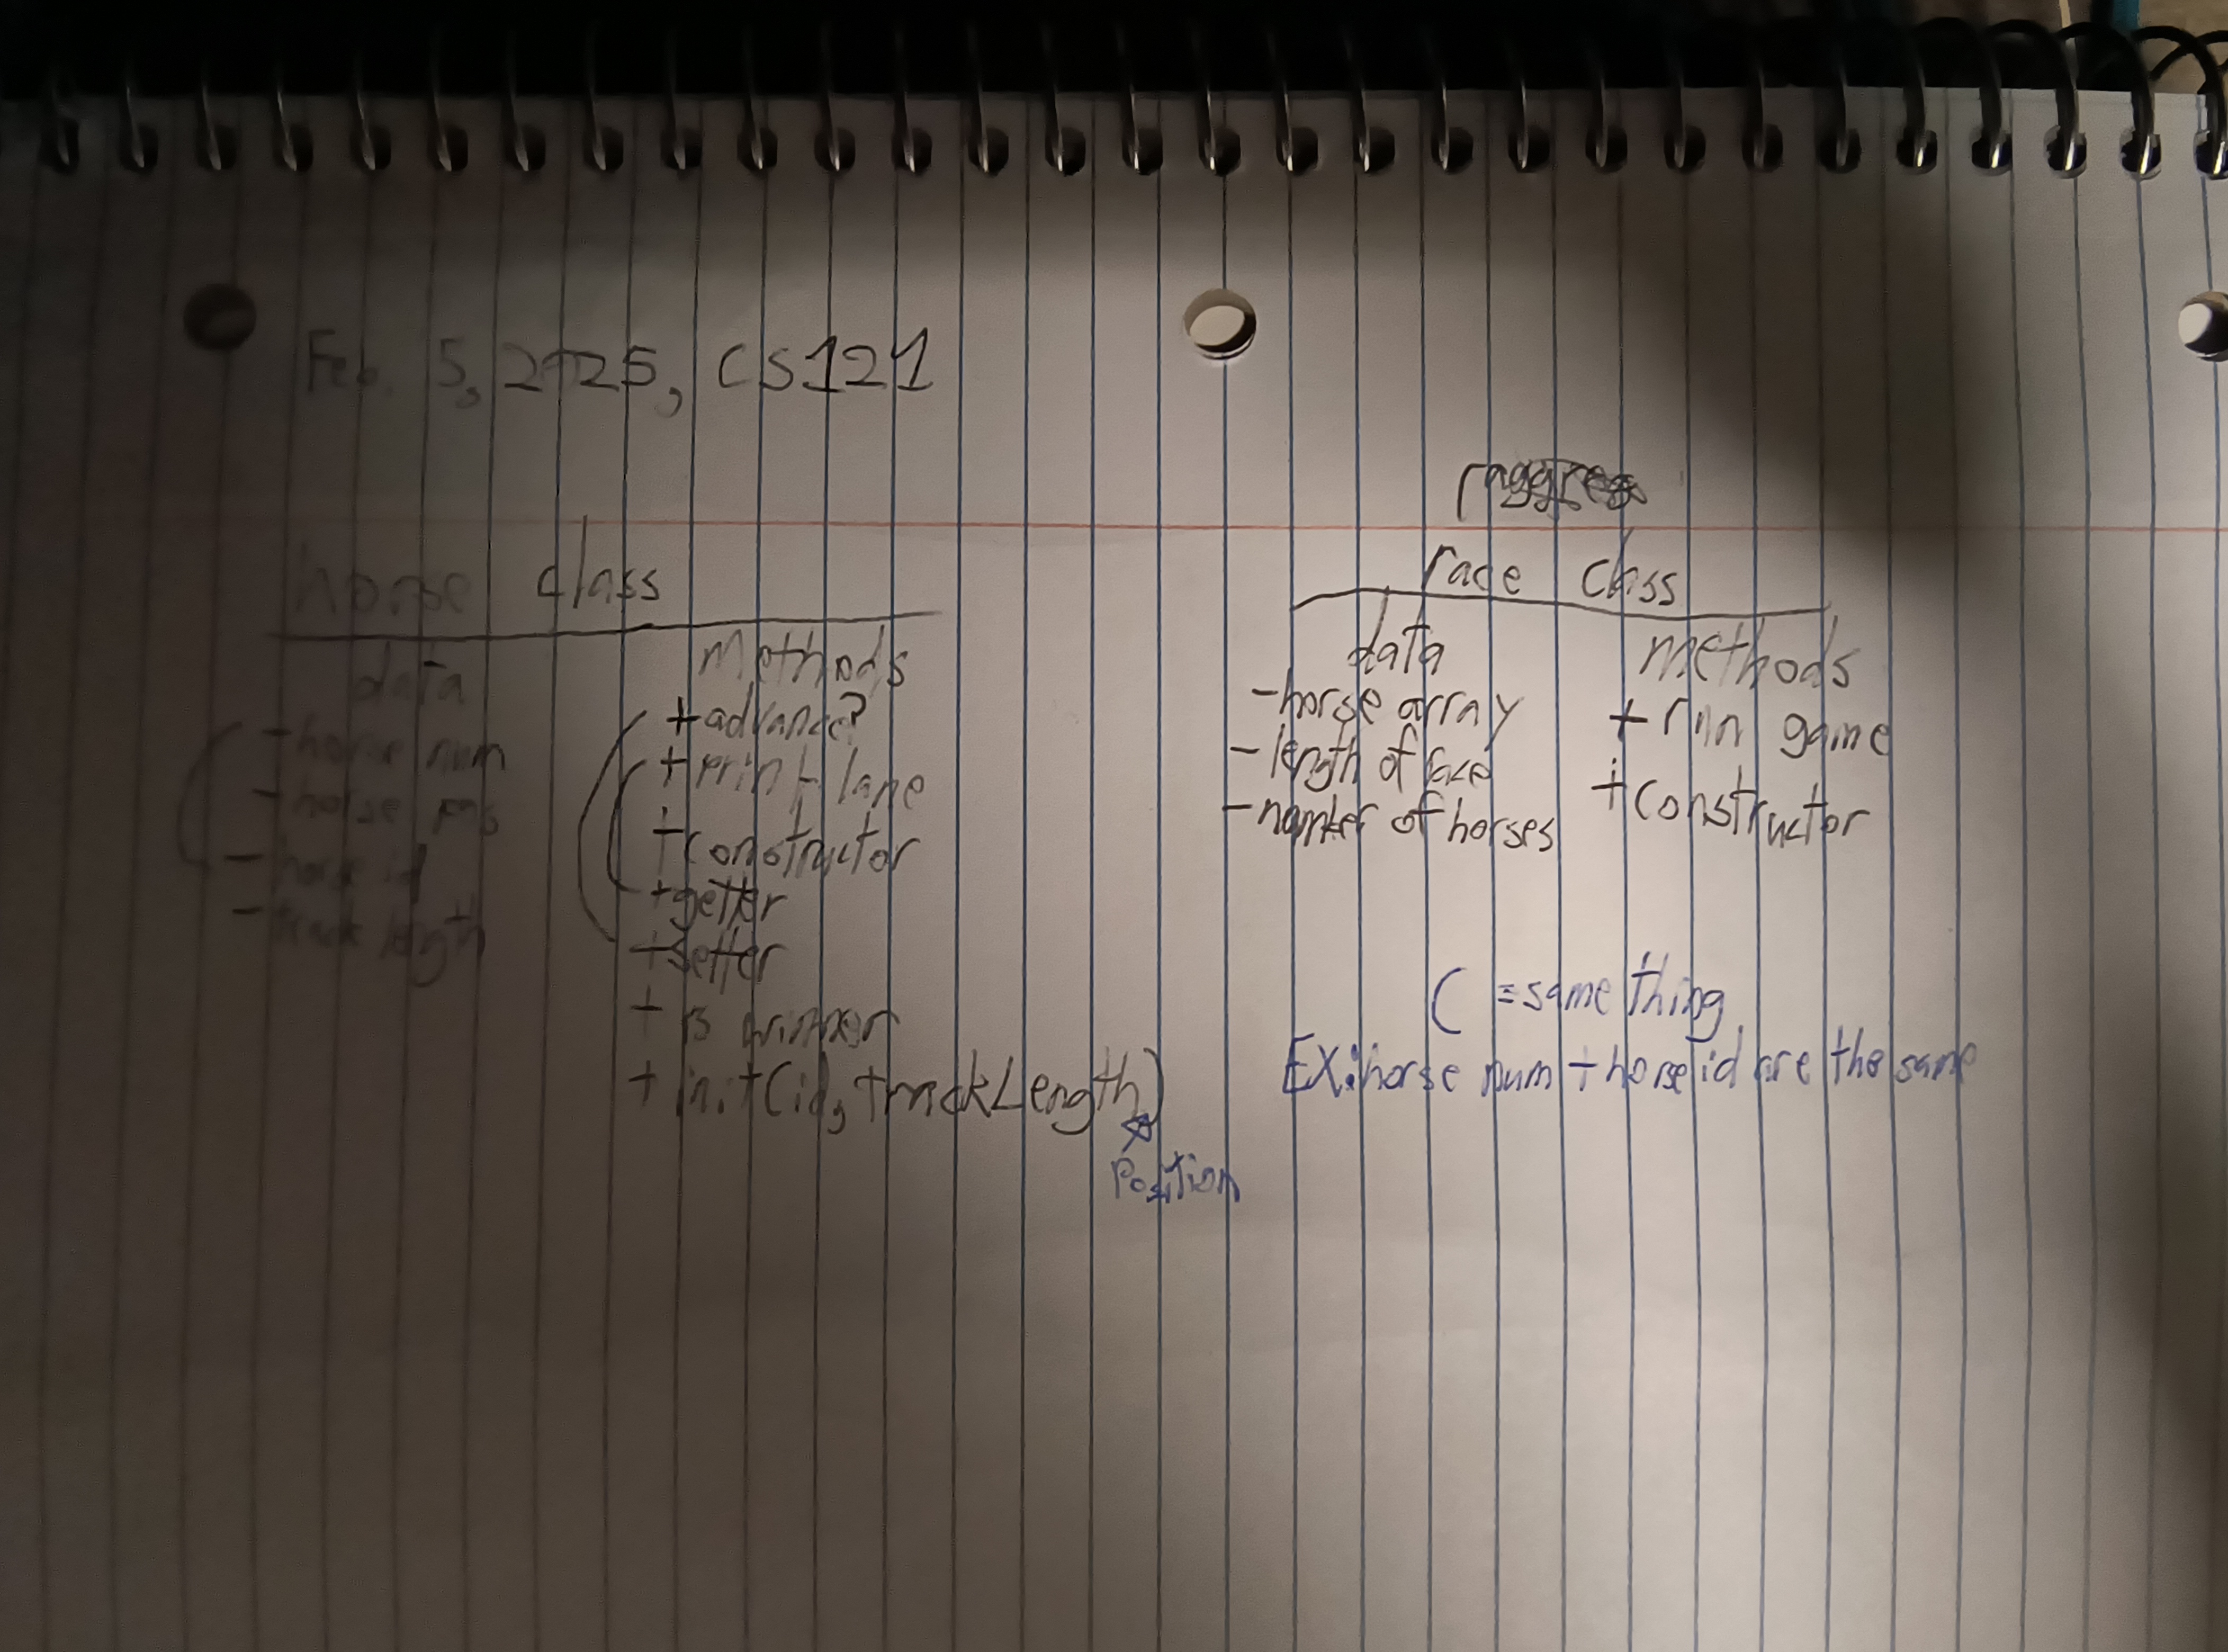 Feb. 5, 2025, CS121
horse class
data
- horse num
- horse pos
- horse id
- track length
Methods
+ advance?
+ print lane
+ constructor
+ getter
+ setter
+ is winner
+ init(id, trackLength)
Position
race class
data
- horse array
- length of race
- number of horses
methods
+ run game
+ constructor
( = same thing
EX: horse num + horse id are the same